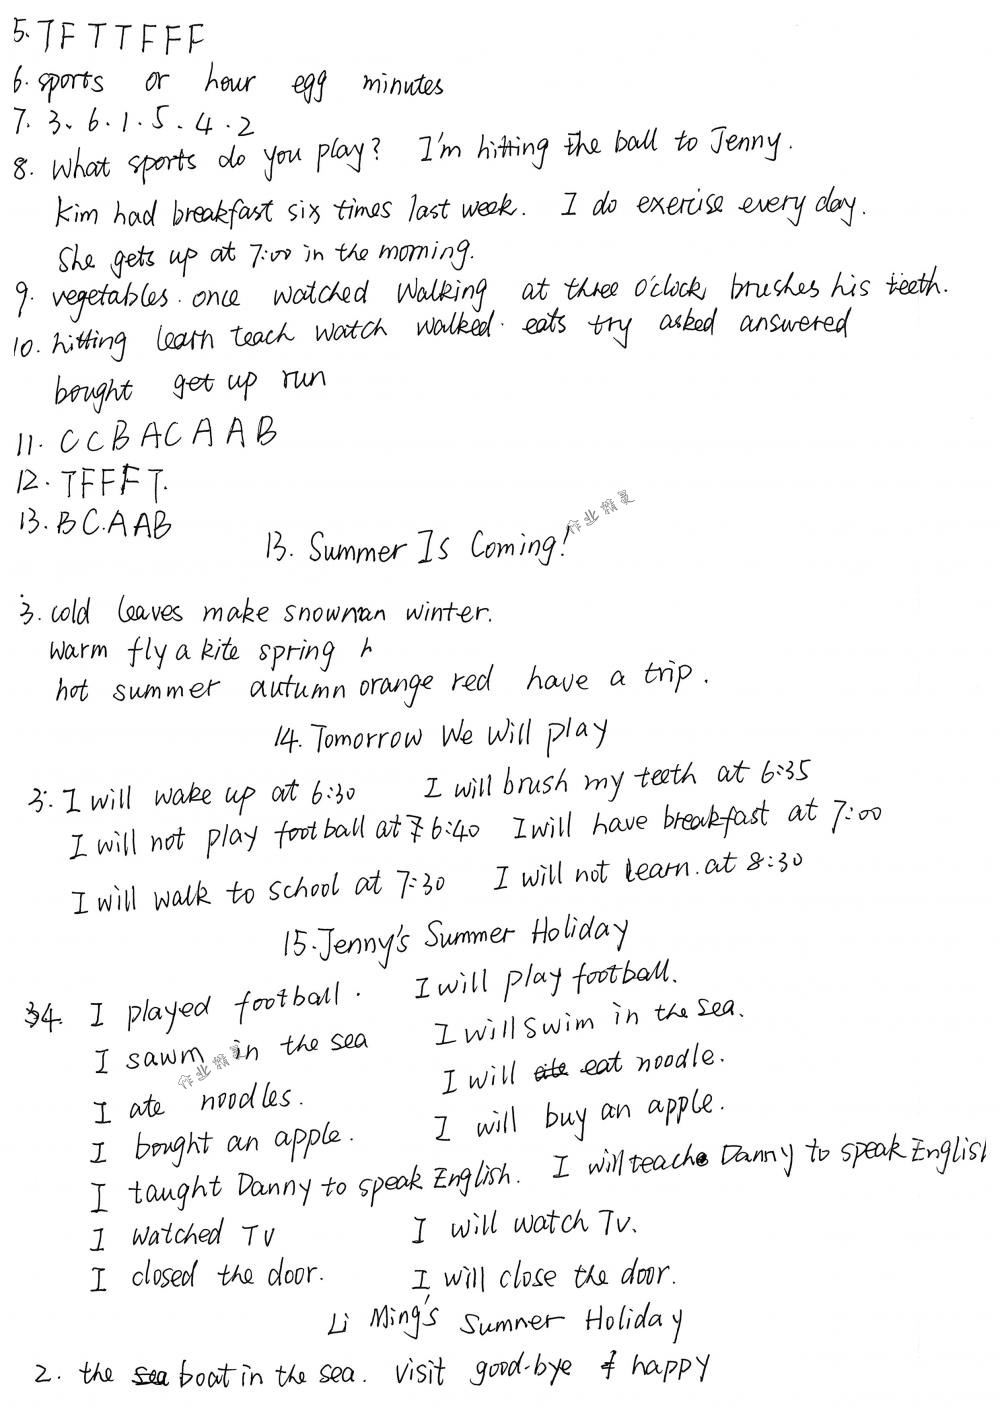 5. T F T T F F F
6. sports or hour egg minutes
7. 3、6.1.5.4.2
8. What sports do you play? I'm hitting the ball to Jenny.
Kim had breakfast six times last week. I do exercise every day.
She gets up at 7:00 in the morning.
9. vegetables. once watched walking at three o'clock, brushes his teeth.
10. hitting learn teach watch walked. eats try asked answered
bought get up run
11. C C B A C A A A B
12. T F F F T.
13. B C. A A B
作业精灵
13. Summer Is Coming!
3. cold leaves make snowman winter.
warm fly a kite spring h
hot summer autumn orange red have a trip.
14. Tomorrow We Will play
3. I will wake up at 6:30 I will brush my teeth at 6:35
I will not play football at 6:40 I will have breakfast at 7:00
I will walk to school at 7:30 I will not learn. at 8:30
15. Jenny's Summer Holiday
4. I played football. I will play football.
I sawm in the sea I will swim in the sea.
作业精灵
I ate noodles. I will eat noodle.
I bought an apple. I will buy an apple.
I taught Danny to speak English. I will teach Danny to speak English
I watched TV I will watch TV.
I closed the door. I will close the door.
Li Ming's Summer Holiday
2. the boat in the sea. visit good-bye happy